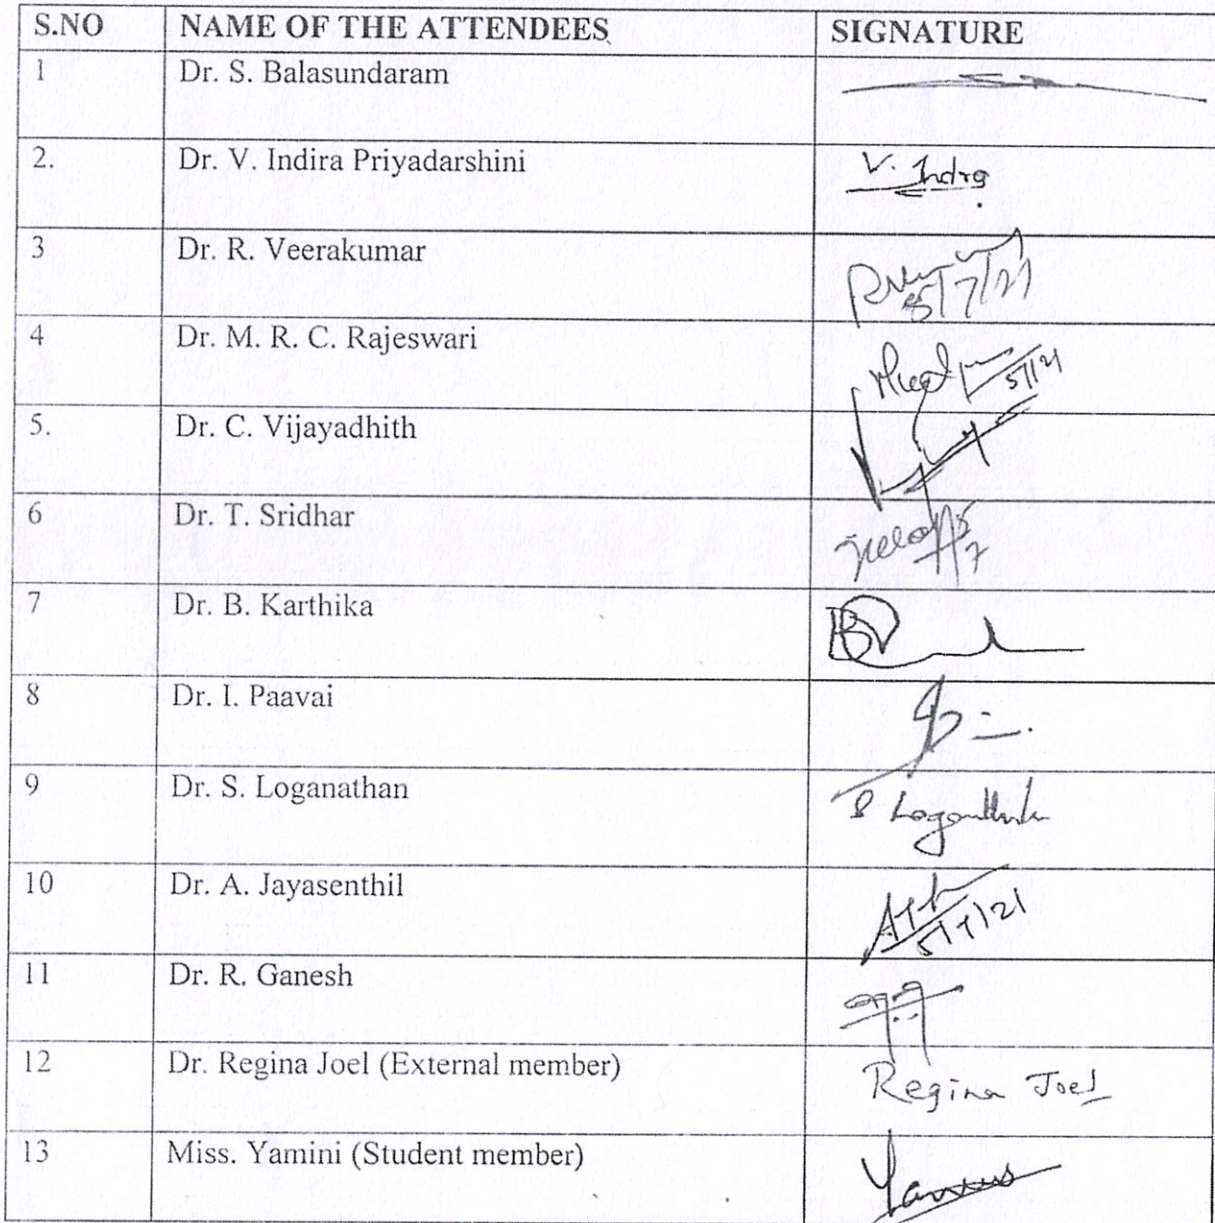 S.NO NAME OF THE ATTENDEES SIGNATURE
1 Dr. S. Balasundaram
2. Dr. V. Indira Priyadarshini V. Indra
3 Dr. R. Veerakumar
5/7/21
4 Dr. M. R. C. Rajeswari
5. Dr. C. Vijayadhith
6 Dr. T. Sridhar
7 Dr. B. Karthika
8 Dr. I. Paavai
9 Dr. S. Loganathan
10 Dr. A. Jayasenthil
5/7/21
11 Dr. R. Ganesh
12 Dr. Regina Joel (External member) Regina Joel
13 Miss. Yamini (Student member)